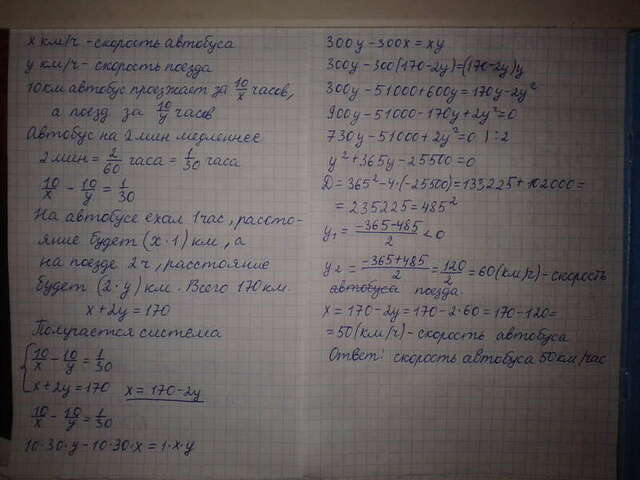 x км/ч - скорость автобуса
y км/ч - скорость поезда
10 км автобус проезжает за 10/x часов,
а поезд за 10/y часов
Автобус на 2 мин медленнее
2 мин = 2/60 часа = 1/30 часа
10/x - 10/y = 1/30
На автобусе ехал 1 час, рассто-
яние будет (x·1) км, а
на поезде 2 ч, расстояние
будет (2·y) км. Всего 170 км.
x+2y=170
Получается система
{10/x - 10/y = 1/30
x+2y=170 x=170-2y
10/x - 10/y = 1/30
10·30·y-10·30·x=1·x·y
300y-300x=xy
300y-300(170-2y)=(170-2y)y
300y-51000+600y=170y-2y²
900y-51000-170y+2y²=0
730y-51000+2y²=0 | :2
y²+365y-25500=0
D=365²-4·(-25500)=133225+102000=
=235225=485²
y₁=(-365-485)/2<0
y₂=(-365+485)/2=120/2=60(км/ч)-скорость
автобуса поезда
x=170-2y=170-2·60=170-120=
=50(км/ч)-скорость автобуса
Ответ: скорость автобуса 50 км/час